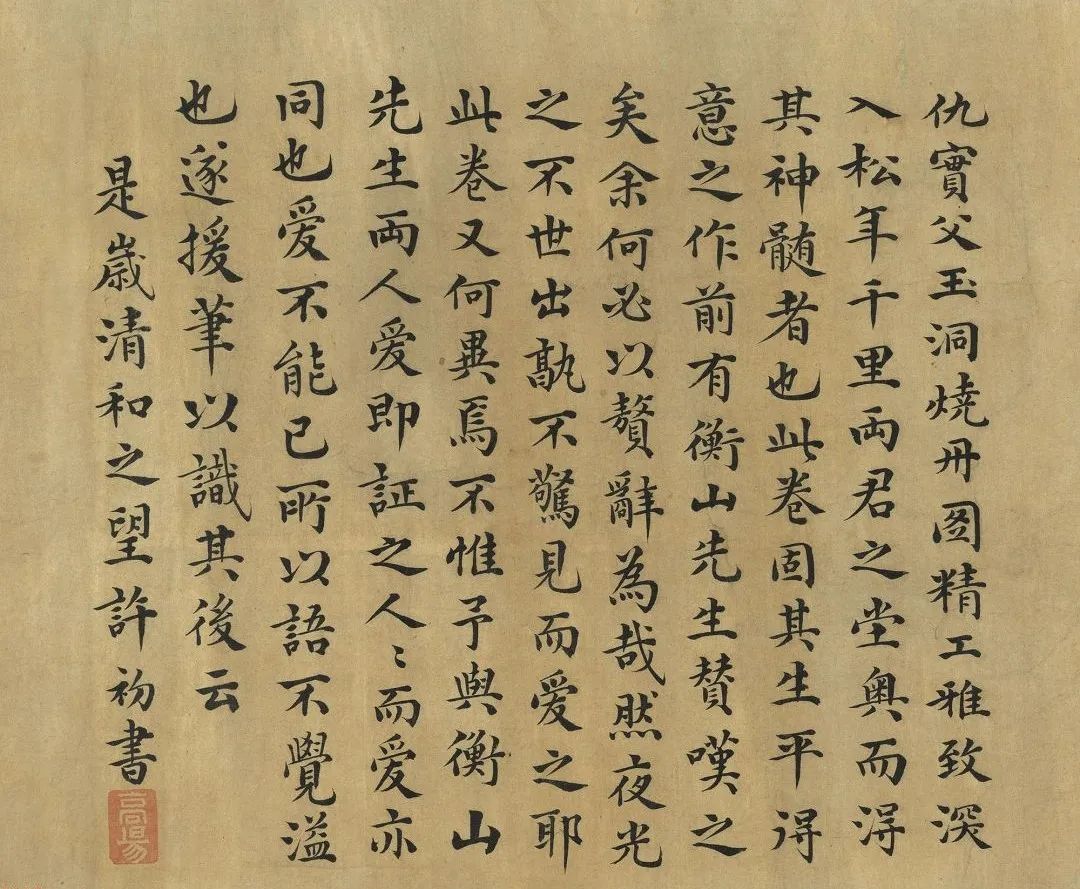 仇實父玉洞燒丹图精工雅致深
入松年千里両君之堂奥而淂
其神髄者也此卷固其生平得
意之作前有衡山先生賛嘆之
矣余何必以贅辭為哉然夜光
之不世出孰不驚見而爱之耶
此卷又何異焉不惟予與衡山
先生両人爱即証之人〻而爱亦
同也爱不能已所以語不覺溢
也遂援筆以識其後云
是歲清和之望許初書
高陽